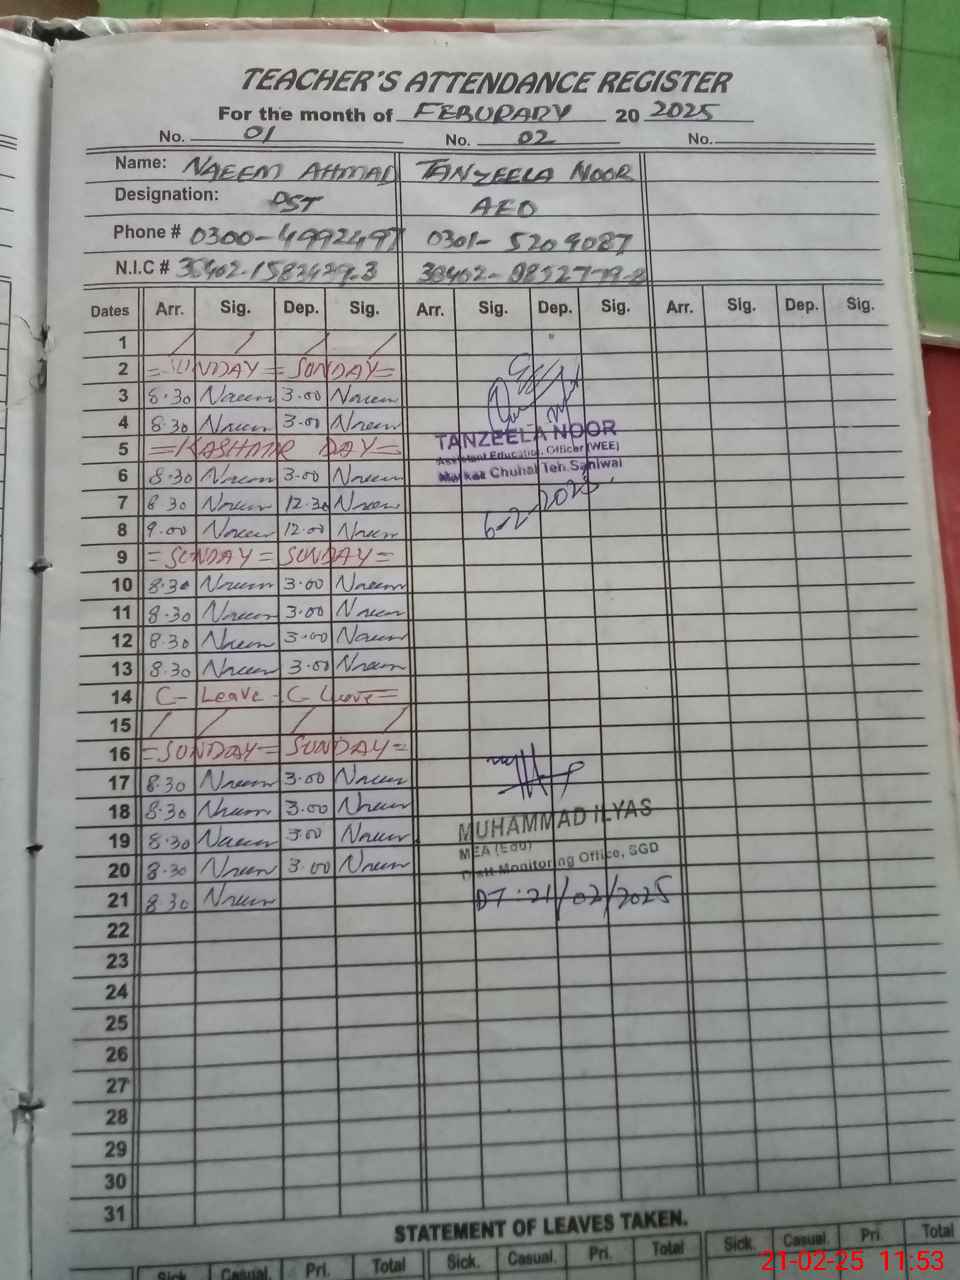 TEACHER'S ATTENDANCE REGISTER
For the month of FEBURARY 20 2025
No. 01 No. 02 No.
Name: NAEEM AHMAD TANZEELA NOOR
Designation: PST AEO
Phone # 0300-4992497 0301-5209087
N.I.C #
Dates Arr. Sig. Dep. Sig. Arr. Sig. Dep. Sig. Arr. Sig. Dep. Sig.
1
2 = SUNDAY = SUNDAY =
3 8.30 Naeem 3.00 Naeem
4 8.30 Naeem 3.00 Naeem
TANZEELA NOOR
5 = KASHMIR DAY =
Assistant Education Officer (WEE)
Markaz Chuha Teh. Sahiwal
6 8.30 Naeem 3.00 Naeem
7 8.30 Naeem 12.30 Naeem
6-2-2025
8 9.00 Naeem 12.00 Naeem
9 = SUNDAY = SUNDAY =
10 8.30 Naeem 3.00 Naeem
11 8.30 Naeem 3.00 Naeem
12 8.30 Naeem 3.00 Naeem
13 8.30 Naeem 3.00 Naeem
14 C- Leave - C- Leave =
15
16 = SUNDAY = SUNDAY =
17 8.30 Naeem 3.00 Naeem
18 8.30 Naeem 3.00 Naeem
MUHAMMAD ILYAS
19 8.30 Naeem 3.00 Naeem
MEA (Edu)
Distt Monitoring Office, SGD
20 8.30 Naeem 3.00 Naeem
21 8.30 Naeem
DT: 21/02/2025
22
23
24
25
26
27
28
29
30
31
STATEMENT OF LEAVES TAKEN.
Sick Casual. Pri. Total Sick. Casual. Pri. Total Sick. Casual. Pri. Total
21-02-25 11:53